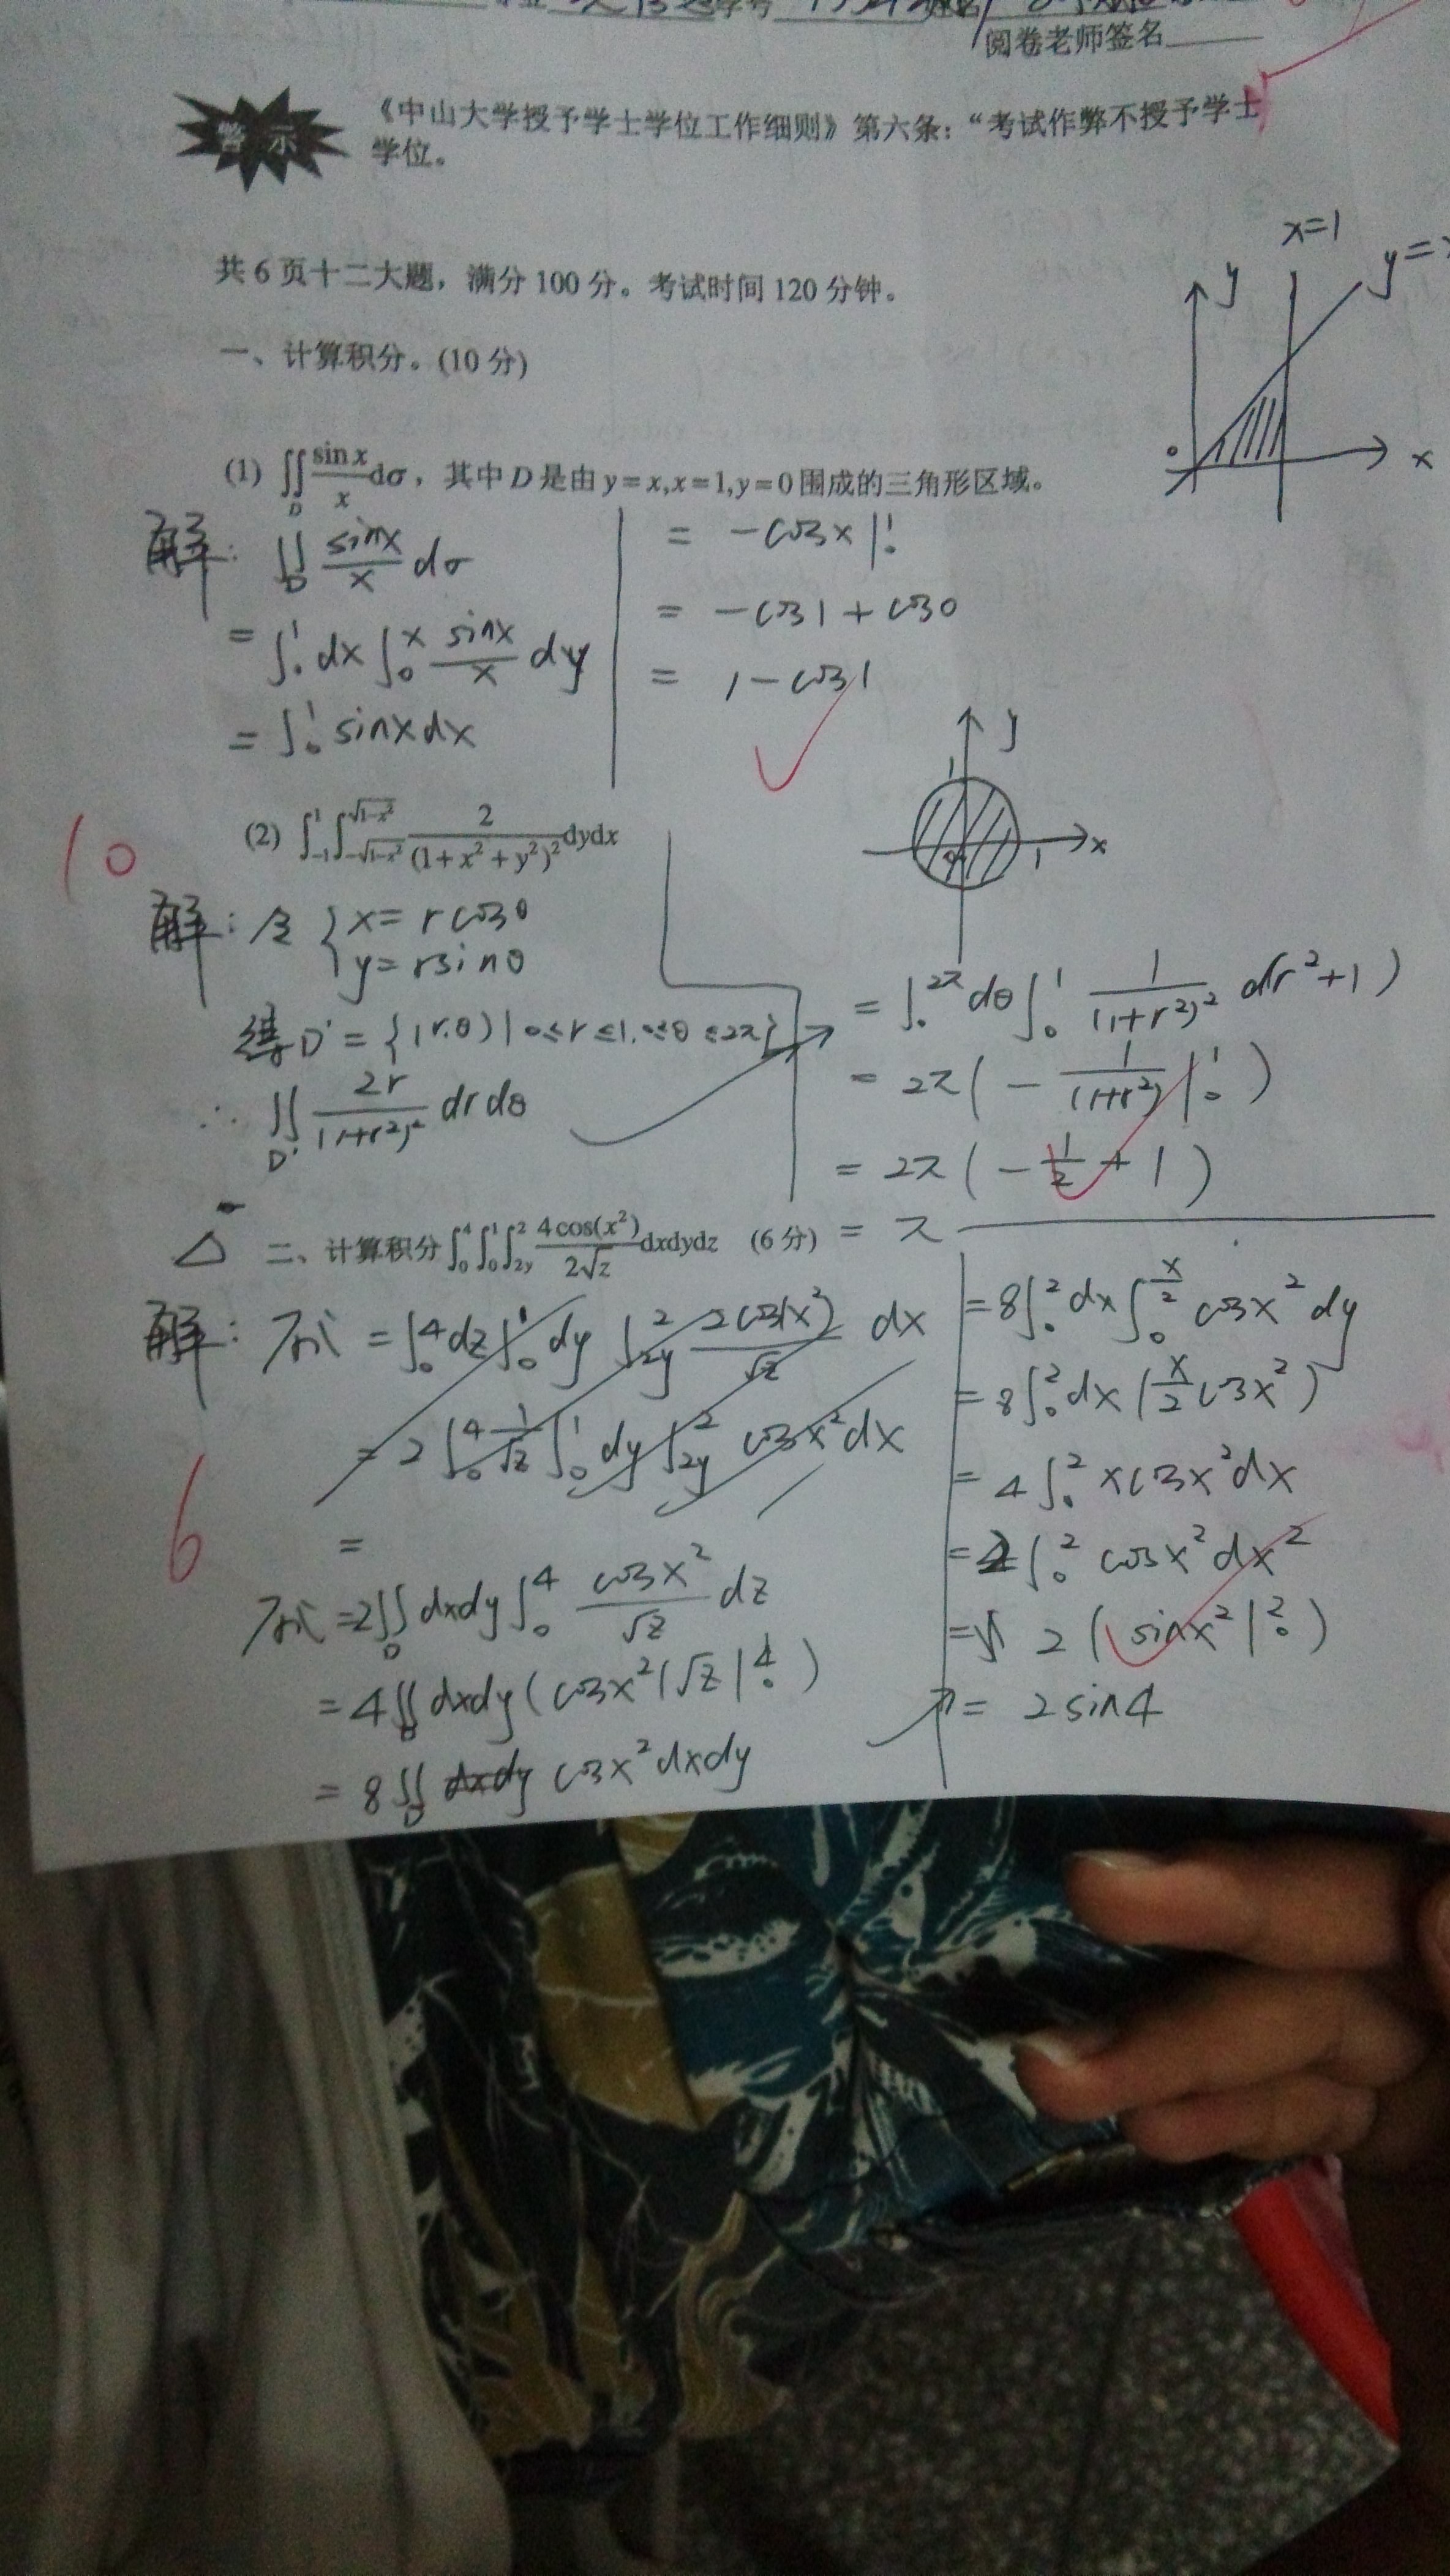 阅卷老师签名
警示
《中山大学授予学士学位工作细则》第六条：“考试作弊不授予学士
学位。
共 6 页十二大题，满分 100 分。考试时间 120 分钟。
x=1
y
x
0
一、计算积分。(10 分)
(1) ∬_D (sin x / x) dσ，其中 D 是由 y = x, x = 1, y = 0 围成的三角形区域。
解： ∬_D (sinx / x) dσ
= ∫_0^1 dx ∫_0^x (sinx / x) dy
= ∫_0^1 sinx dx
= -cosx |_0^1
= -cos1 + cos0
= 1 - cos1
10
(2) ∫_{-1}^{1} ∫_{-√(1-x²)}^{√(1-x²)} 2 / (1+x²+y²)² dydx
y
1
0
1
x
解： 令 { x = r cosθ
y = rsinθ
得 D' = {(r,θ) | 0≤r≤1, 0≤θ≤2π}
∴ ∬_{D'} 2r / (1+r²)² dr dθ
= ∫_0^{2π} dθ ∫_0^1 1 / (1+r²)² d(r²+1)
= 2π ( - 1 / (1+r²) |_0^1 )
= 2π ( - 1/2 + 1 )
= π
△ 二、计算积分 ∫_0^4 ∫_0^1 ∫_{2y}^2 4cos(x²) / (2√z) dxdydz (6 分)
解： 原式 = ∫_0^4 dz ∫_0^1 dy ∫_{2y}^2 2cos(x²) / √z dx
= 2 ∫_0^4 1/√z ∫_0^1 dy ∫_{2y}^2 cosx² dx
=
6
原式 = 2∬_D dxdy ∫_0^4 cosx² / √z dz
= 4∬_D dxdy ( cosx² (√z |_0^4 )
= 8∬_D cosx² dxdy
= 8∫_0^2 dx ∫_0^{x/2} cosx² dy
= 8∫_0^2 dx ( x/2 cosx² )
= 4∫_0^2 x cosx² dx
= 2∫_0^2 cosx² dx²
= 2 ( sinx² |_0^2 )
= 2sin4